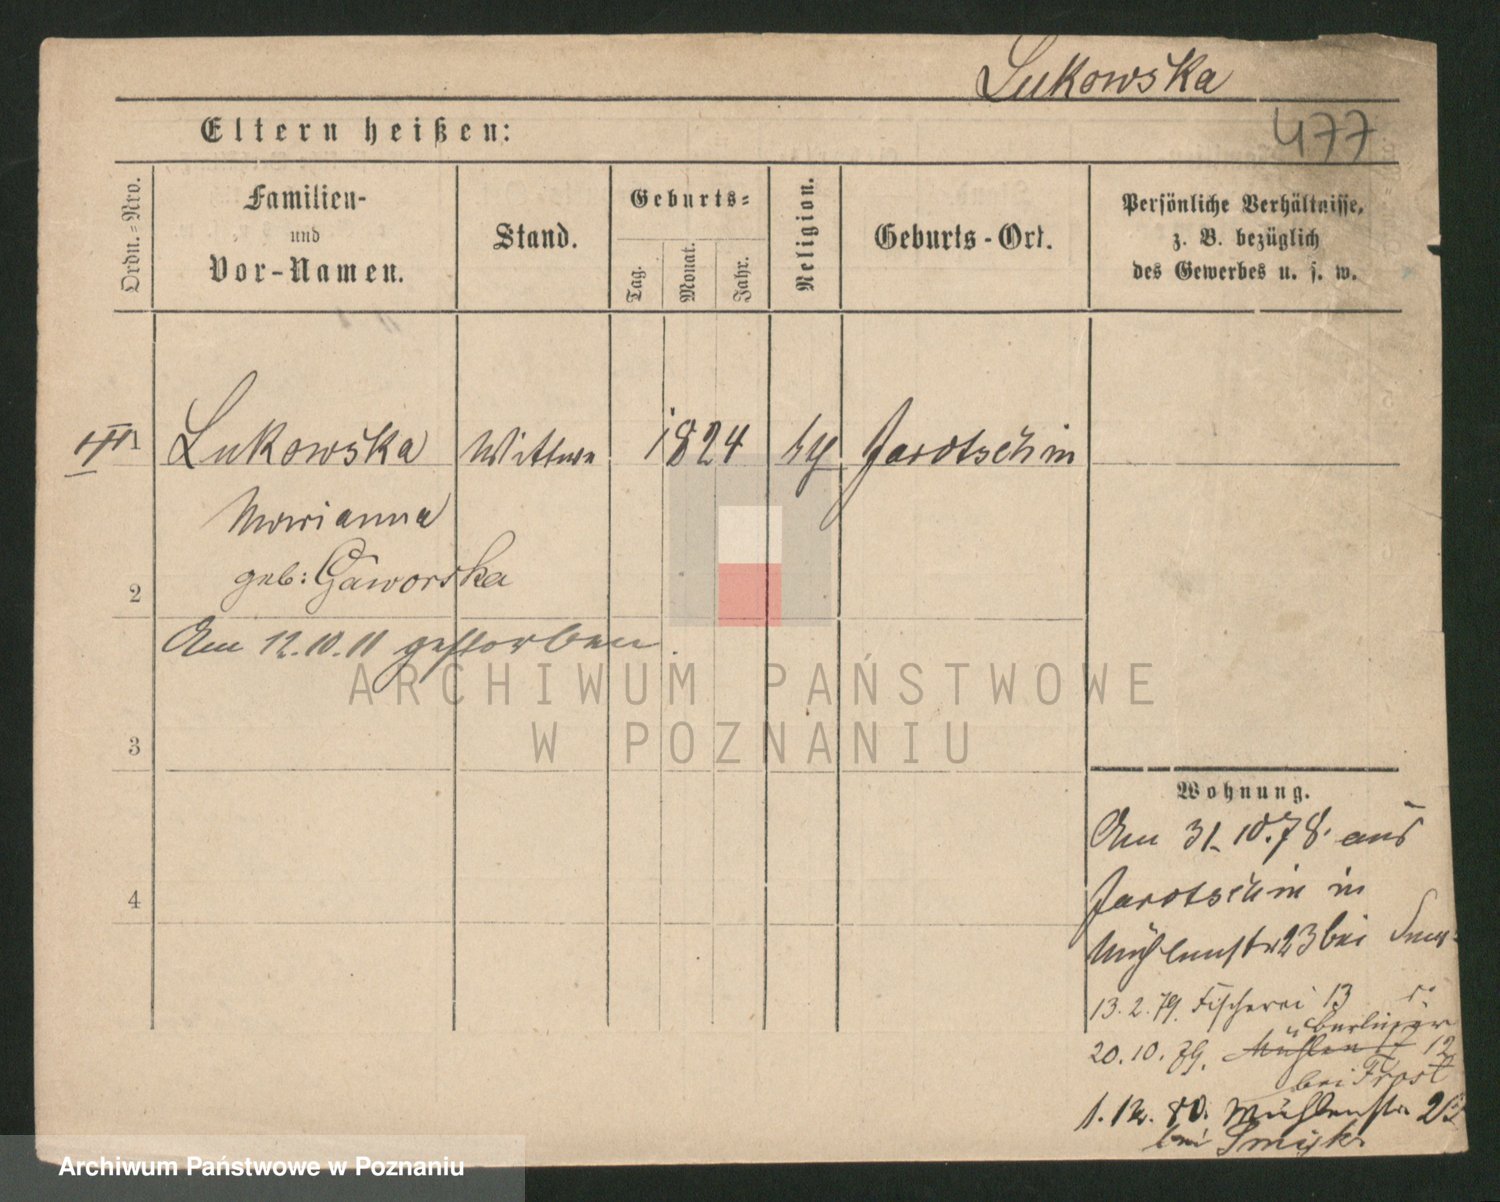 Lukowska
477
Eltern heißen:
Ordn.-Nro.
Familien-
und
Vor-Namen.
Stand.
Geburts-
Tag.
Monat.
Jahr.
Religion.
Geburts-Ort.
Persönliche Verhältnisse,
z. B. bezüglich
des Gewerbes u. s. w.
1 Lukowska Wittwe 1824 Jarotschin
Marianna
geb: Gaworska
2
Am 12.10.11 gestorben.
3
4
ARCHIWUM PAŃSTWOWE
W POZNANIU
Wohnung.
Am 31.10.78. aus
Jarotschin in
Mühlenstr 23 bei
13.2.79. Fischerei 13
Berliner
20.10.79. Mühlen 17 12
bei Frost
1.12.80. Mühlenstr. 23
bei Smyk
Archiwum Państwowe w Poznaniu